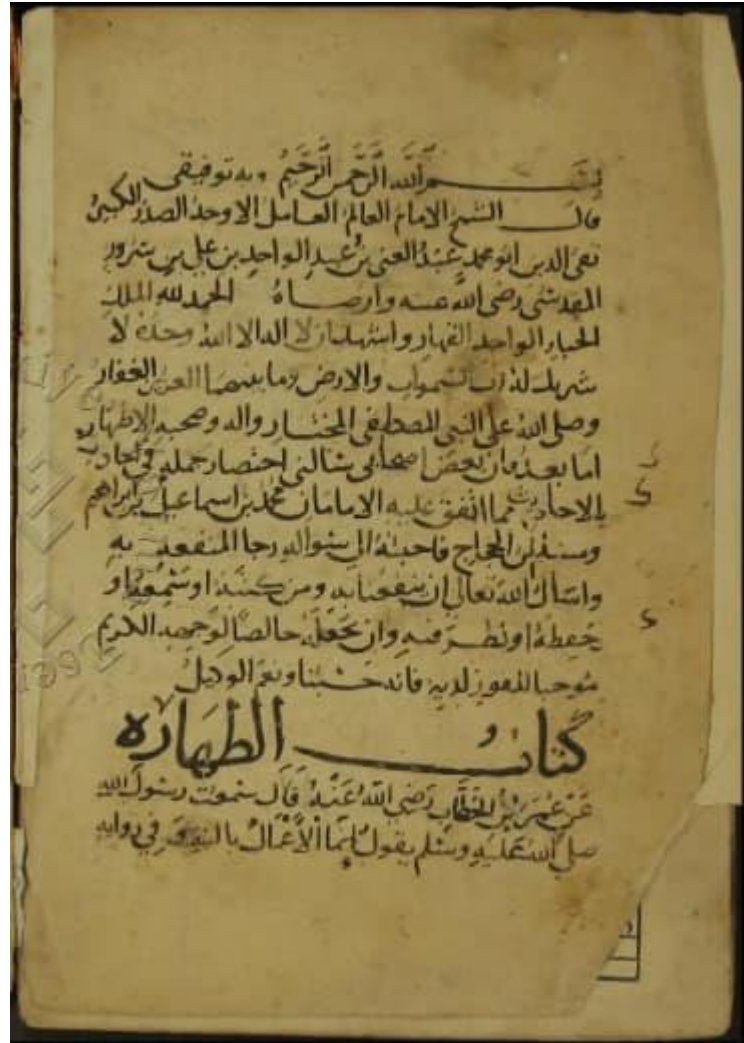 بسم الله الرحمن الرحيم وبه توفيقي
قال الشيخ الامام العالم العامل الاوحد الصدر الكبير
تقي الدين ابو محمد عبد الغني بن عبد الواحد بن علي بن سرور
المقدسي رضي الله عنه وارضاه الحمد لله الملك
الجبار الواحد القهار واشهد ان لا اله الا الله وحده لا
شريك له رب السموات والارض وما بينهما العزيز الغفار
وصلى الله على النبي المصطفى المختار واله وصحبه الاطهار
اما بعد فان بعض اصحابي سالني اختصار جملة في احاديث
الاحكام مما اتفق عليه الامامان محمد بن اسماعيل بن ابراهيم
ومسلم بن الحجاج فاجبته الى سواله رجا المنفعة به
واسال الله تعالى ان ينفعنا به ومن كتبه او سمعه او
حفظه او نظر فيه وان يجعله خالصا لوجهه الكريم
موجبا للفوز لديه فانه حسبنا ونعم الوكيل
كتاب الطهارة
عَنْ عُمَرَ بْنِ الخطاب رَضِي اللَّهُ عَنْهُ قَالَ سَمِعت رسول الله
صلى الله عليه وسلم يقول إِنَّمَا الأَعْمَالُ بالنية وفي رواية